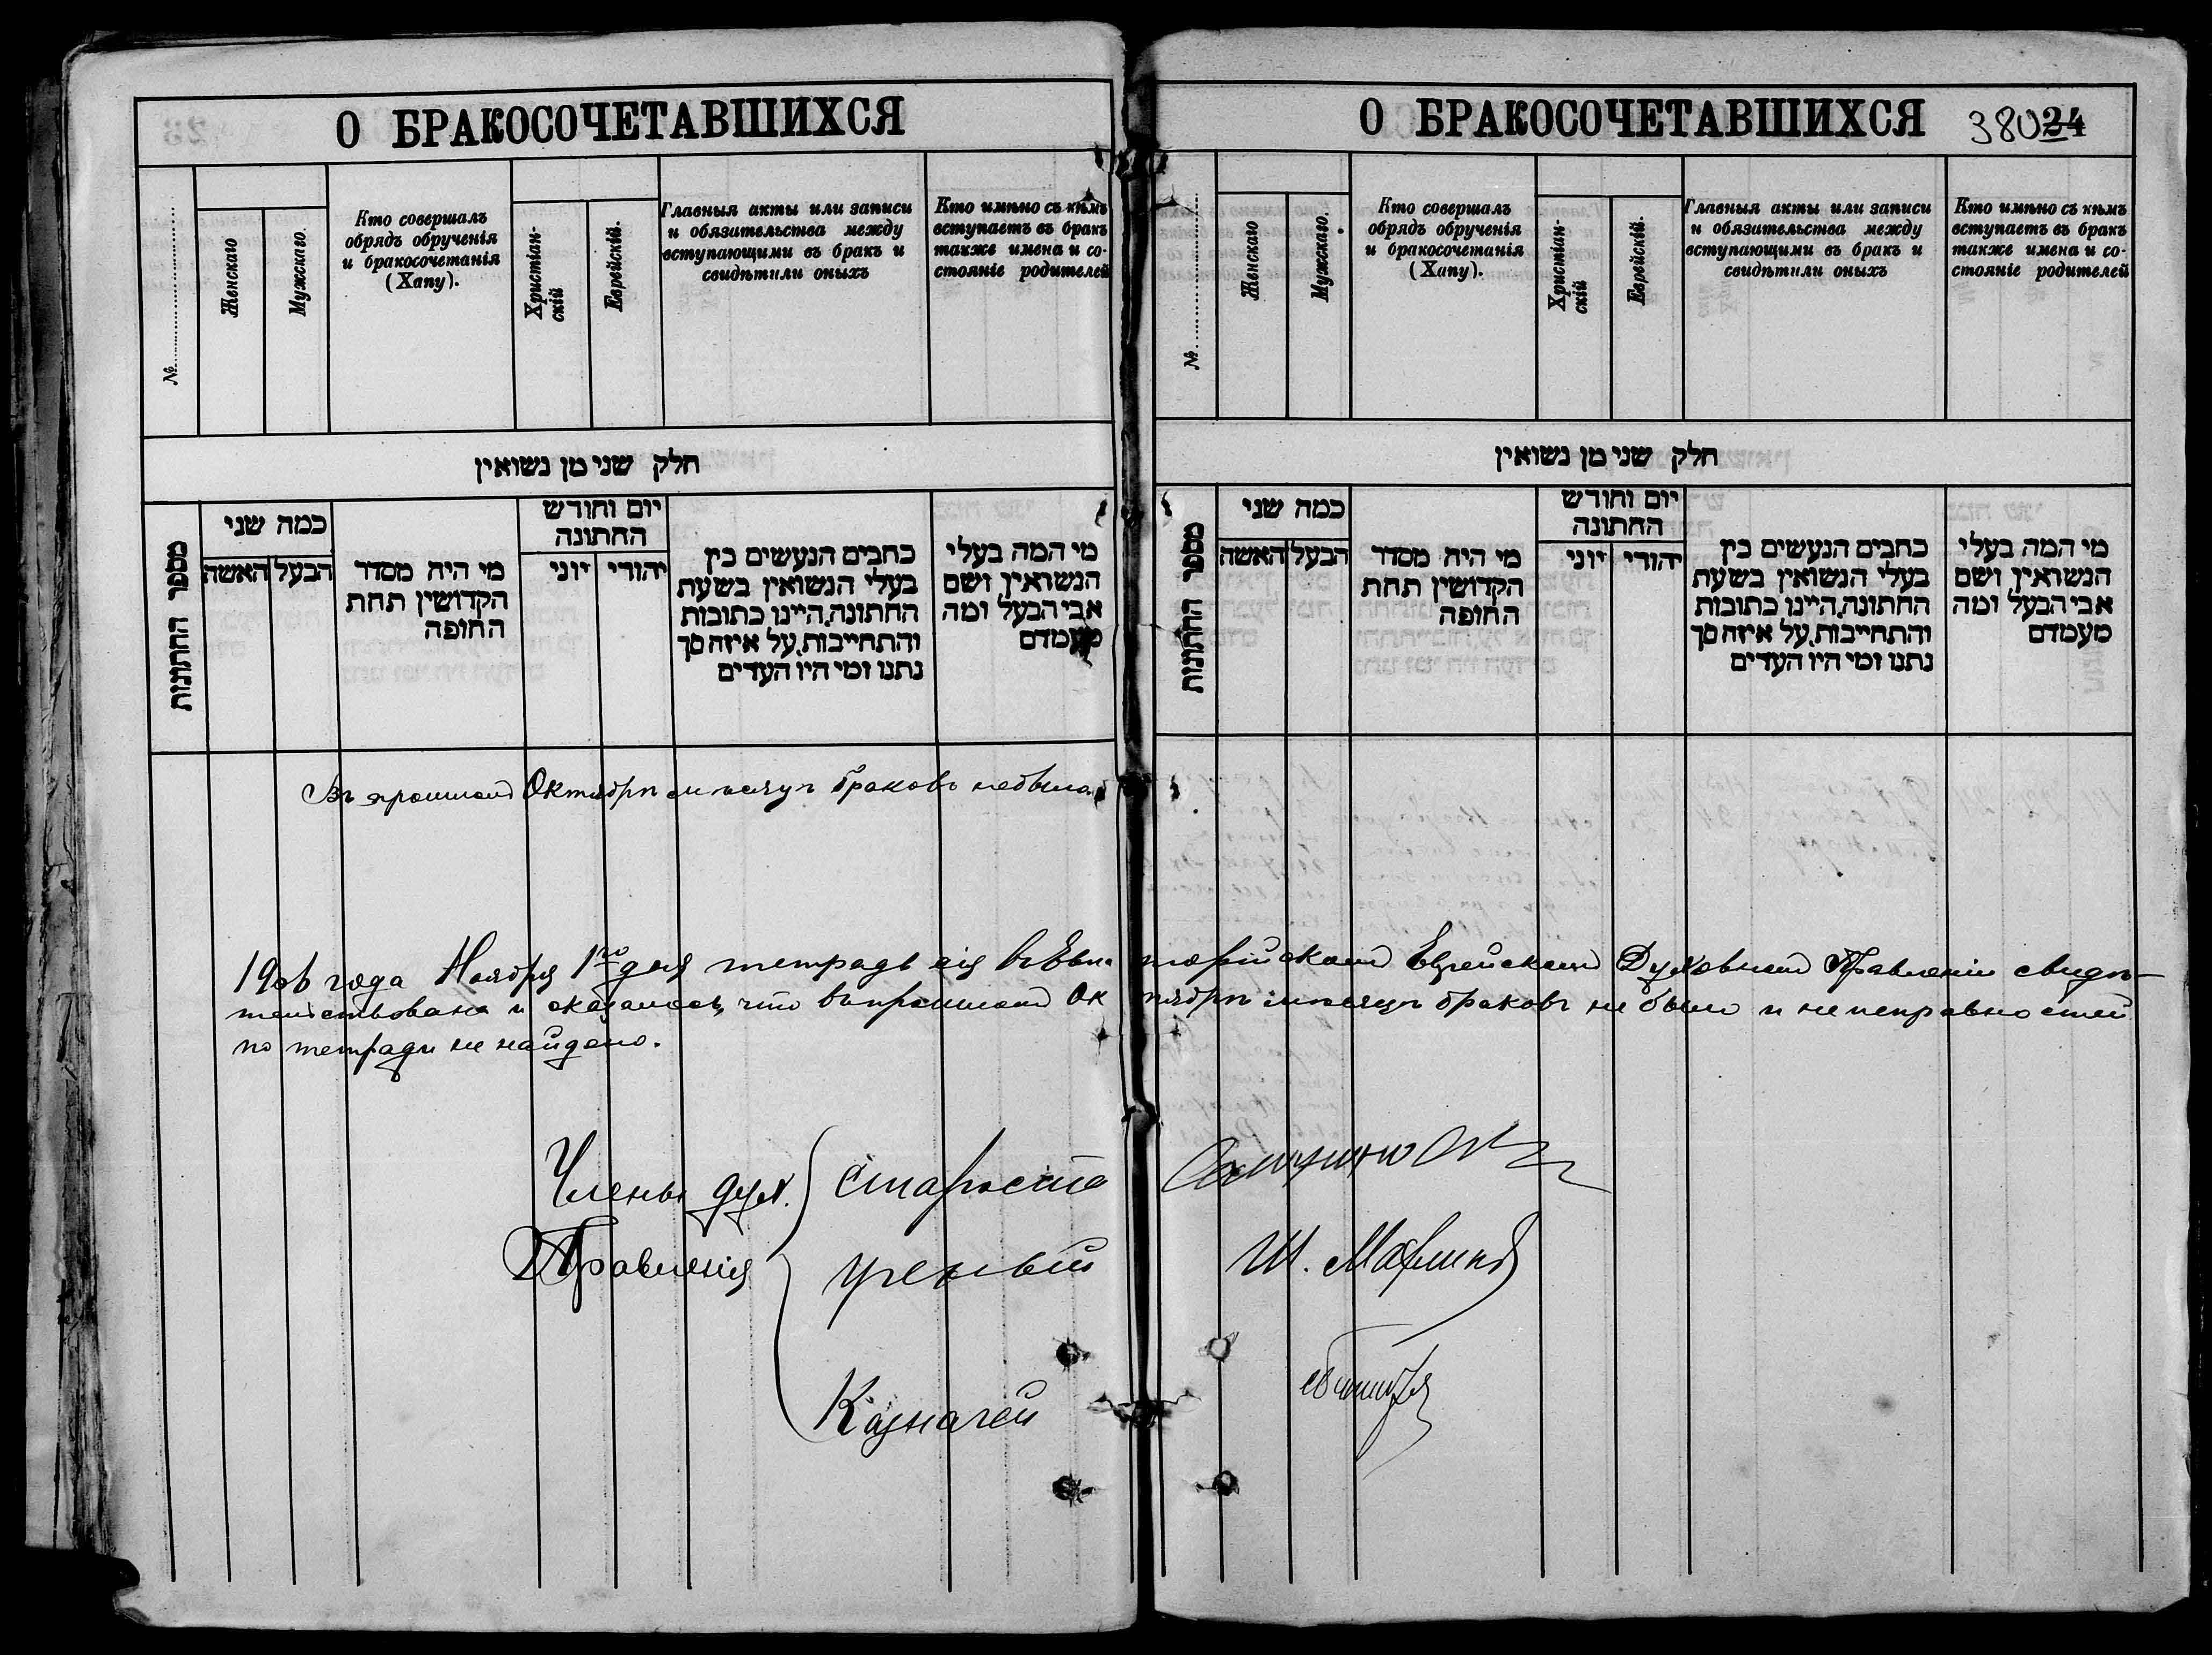 О БРАКОСОЧЕТАВШИХСЯ
№
Женскаго
Мужскаго.
Кто совершалъ
обрядъ обрученія
и бракосочетанія
(Хапу).
Христіан-
скій
Еврейскій.
Главныя акты или записи
и обязательства между
вступающими въ бракъ и
свидѣтили оныхъ
Кто имѣно съ кѣмъ
вступаетъ въ бракъ
также имена и со-
стояніе родителей
חלק שני מן נשואין
מספר החתונות
כמה שני
האשה
הבעל
מי היה מסדר
הקדושין תחת
החופה
יום וחודש
החתונה
יוני
יהודי
כתבים הנעשים בין
בעלי הנשואין בשעת
החתונה, היינו כתובות
והתחייבות, על איזה סך
נתנו ומי היו העדים
מי המה בעלי
הנשואין, ושם
אבי הבעל ומה
מעמדם
О БРАКОСОЧЕТАВШИХСЯ
380 24
№
Женскаго
Мужскаго.
Кто совершалъ
обрядъ обрученія
и бракосочетанія
(Хапу).
Христіан-
скій
Еврейскій.
Главныя акты или записи
и обязательства между
вступающими въ бракъ и
свидѣтили оныхъ
Кто имѣно съ кѣмъ
вступаетъ въ бракъ
также имена и со-
стояніе родителей
חלק שני מן נשואין
מספר החתונות
כמה שני
האשה
הבעל
מי היה מסדר
הקדושין תחת
החופה
יום וחודש
החתונה
יוני
יהודי
כתבים הנעשים בין
בעלי הנשואין בשעת
החתונה, היינו כתובות
והתחייבות, על איזה סך
נתנו ומי היו העדים
מי המה בעלי
הנשואין, ושם
אבי הבעל ומה
מעמדם
Въ прошломъ Октябрѣ мѣсяцѣ браковъ небыло
1906 года Ноября 1го дня тетрадь сія въ Евпаторійскомъ Еврейскомъ Духовномъ Правленіи свидѣ-
тельствована и оказалось, что въ прошломъ Октябрѣ мѣсяцѣ браковъ не было и неисправностей
по тетради не найдено.
Члены дух.
Правленія
Староста
Ученый
Ш.
Казначей